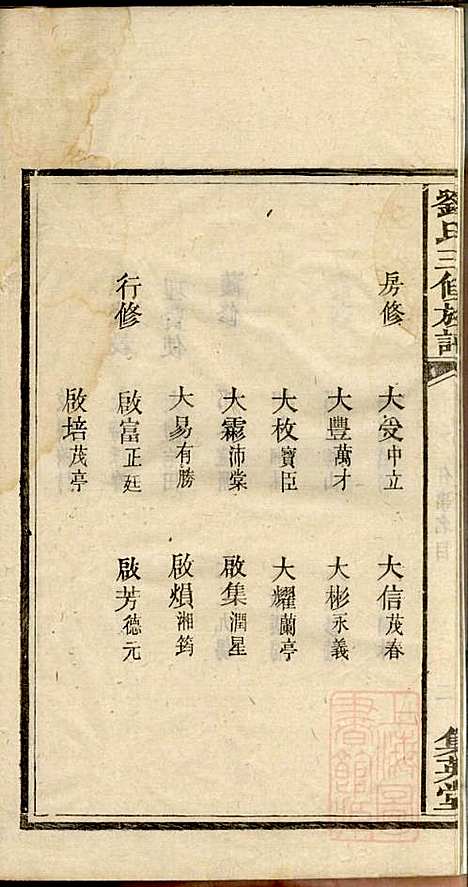 劉氏三修族譜
集英堂
房修 大受中立 大信茂春
大豐萬才 大彬永義
大枚寶臣 大耀蘭亭
大霈沛棠 啟集潤星
大易有勝 啟熉湘筠
行修 啟富正廷 啟芳德元
啟培茂亭